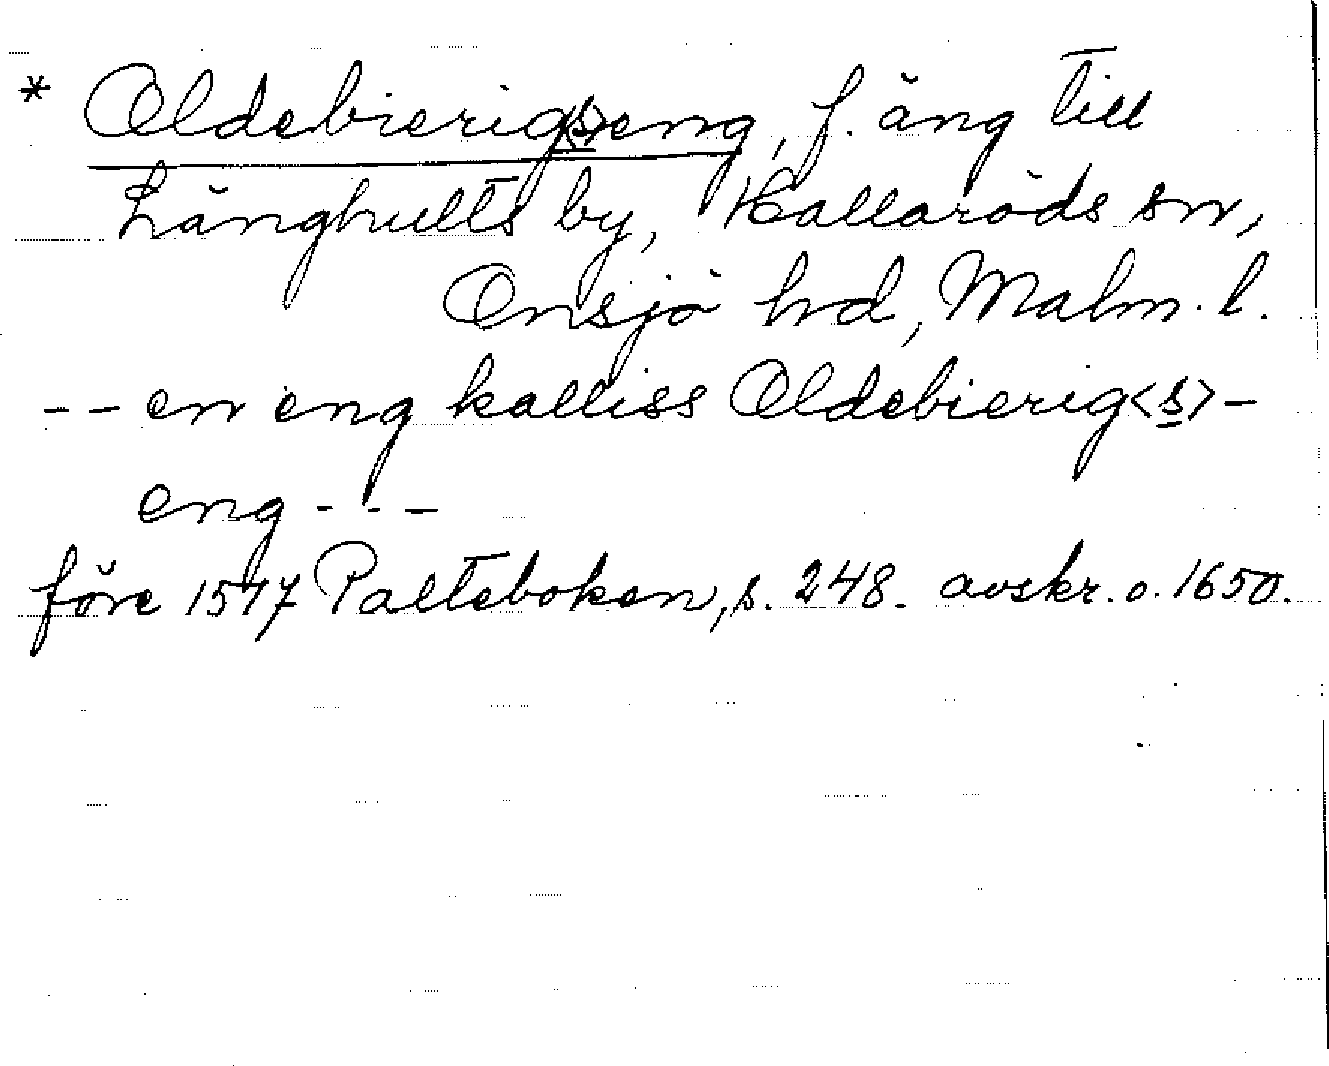 * Oldebierig(s)eng, f. äng till
Långhults by, Hallaröds sn,
Onsjö hd, Malm. l.
-- en eng kalliss Oldebierig<s>-
eng ---
före 1547 Palteboken, s. 248. avskr. o. 1650.